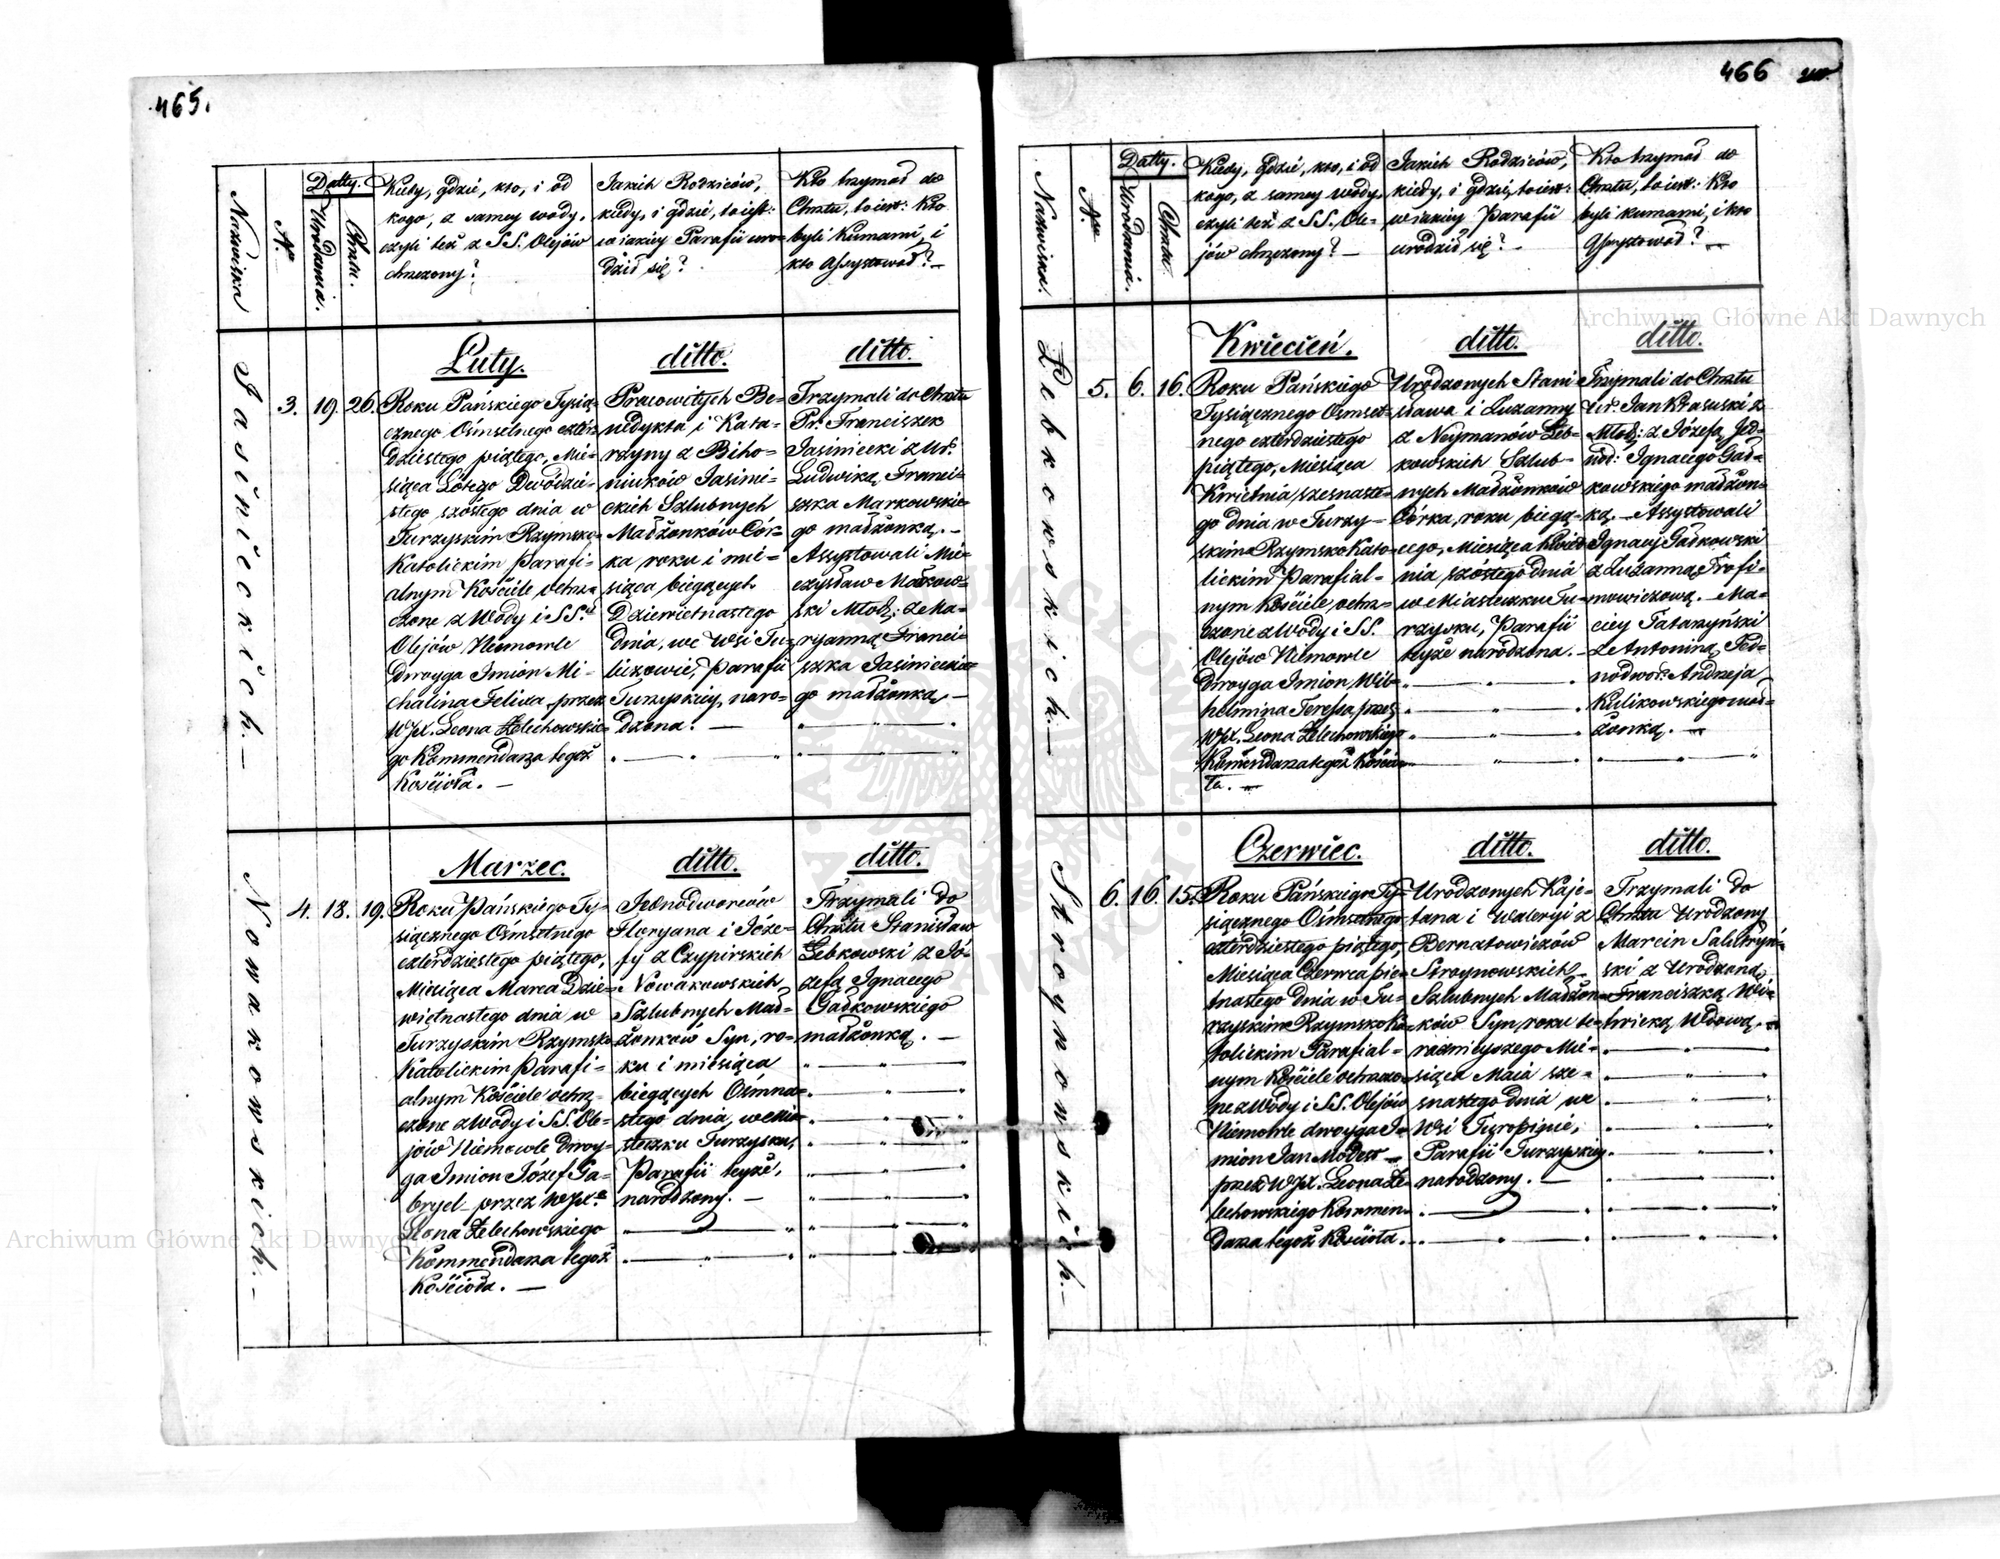 465.
Nazwiska
Nr.
Datty.
Urodzenia.
Chrztu.
Kiedy, gdzie, kto, i od
kogo, z samey wody,
czyli też z SS. Olejów
chrzczony?
Jakich Rodziców,
kiedy, i gdzie, to iest:
w iakiéy Parafii uro=
dził się?
Kto trzymał do
Chrztu, to iest: Kto
byli Kumami, i
kto Assystował? —
Jasinieckich. —
3.
19.
26.
Luty.
Roku Pańskiego Tysią=
cznego Ośmsetnego czter=
dziestego piątego, Mie=
siąca Lutego Dwódzie=
stego szóstego dnia w
Turzyskim Rzymsko
Katolickim Parafi=
alnym Kościele ochrz=
czone z Wody i SS.
Olejów Niemowle
dwoyga Imion Mi=
chalina Felixa, przez
WJX. Leona Żelechowskie=
go Kommendarza tegoż
Kościoła. —
ditto.
Pracowitych Be=
nedykta i Kata=
rzyny z Biho=
niuków Jasinie=
ckich Szlubnych
Małżonków Cór=
ka roku i mie=
siąca bieżących
Dziewietnastego
dnia, we Wsi Tu=
liczowie, Parafii
Turzyskiey, naro=
dzona. —
ditto.
Trzymali do Chrztu
Pr. Franciszek
Jasiniecki z Ur.
Ludwiką, Franci=
szka Markowskie=
go małżonką. —
Assystowali Mie=
czysław Małkow=
ski Młodz: z Ma=
ryanną Franci=
szka Jasinieckie=
go małżonką, —
Nowakowskich. —
4.
18.
19.
Marzec.
Roku Pańskiego Ty=
siącznego Ośmsetnego
czterdziestego piątego,
Miesiąca Marca Dzie=
więtnastego dnia w
Turzyskim Rzymsko
Katolickim Parafi=
alnym Kościele ochrz=
czone z Wody i SS. Ole=
jów Niemowle dwoy=
ga Imion Józef Ga=
bryel przez WJX.
Leona Żelechowskiego
Kommendarza tegoż
Kościoła. —
ditto.
Jednodworców
Floryana i Józe=
fy z Czypirskich
Nowakowskich
Szlubnych Mał=
żonków Syn, ro=
ku i miesiąca
bieżących Ośmna=
stego dnia, w Mia=
steczku Turzysku,
Parafii teyże,
narodzony. —
ditto.
Trzymali do
Chrztu Stanisław
Łebkowski z Jó=
zefą Ignacego
Gadkowskiego
małżonką. —
466
Nazwiska.
Nr.
Datty.
Urodzenia.
Chrztu.
Kiedy, gdzie, kto, i od
kogo, z samey wody,
czyli też z SS. Ole=
jów chrzczony? —
Jakich Rodziców,
kiedy, i gdzie, to iest:
w iakiéy Parafii
urodził się? —
Kto trzymał do
Chrztu, to iest: Kto
byli kumami, i kto
Assystował? —
Łebkowskich. —
5.
6.
16.
Kwiecień.
Roku Pańskiego
Tysiącznego Ośmset=
nego czterdziestego
piątego, Miesiąca
Kwietnia szesnaste=
go dnia w Turzy=
skim Rzymsko Kato=
lickim Parafial=
nym Kościele ochrz=
czone z Wody i SS.
Olejów Niemowle
dwoyga Imion Wil=
helmina Teressa przez
WJX. Leona Żelechowskiego
Kommendarza tegoż Kościo=
ła. —
ditto.
Urodzonych Stani=
sława i Zuzanny
z Neymanów Łeb=
kowskich Szlub=
nych Małżonków
Córka, roku bieżą=
cego, Miesiąca Kwiet=
nia, szóstego dnia
w Miasteczku Tu=
rzysku, Parafii
teyże narodzona. —
ditto.
Trzymali do Chrztu
Ur. Jan Krasuski z
Młodz: z Józefą Jed=
nod: Ignacego Gad=
kowskiego małżon=
ką. — Assystowali
Ignacy Gadkowski
z Zuzanną Trofi=
mowiczową. — Ma=
ciey Tatarzyński
z Antoniną Jed=
nodwor: Andrzeja
Kulikowskiego mał=
żonką. —
Stroynowskich. —
6.
16.
15.
Czerwiec.
Roku Pańskiego Ty=
siącznego Ośmsetnego
czterdziestego piątego,
Miesiąca Czerwca pie=
tnastego dnia w Tu=
rzyskim Rzymsko Ka=
tolickim Parafial=
nym Kościele ochrzczo=
ne z Wody i SS. Olejów
Niemowle dwoyga I=
mion Jan Modest —
przez WJX. Leona Że=
lechowskiego Kommen=
darza tegoż Kościoła.
ditto.
Urodzonych Kaje=
tana i Waleryi z
Bernatowiczów
Stroynowskich
Szlubnych Małżon=
ków Syn, roku te=
raznieyszego Mie=
siąca Maia sze=
snastego dnia we
Wsi Turopinie,
Parafii Turzyskiey
narodzony. —
ditto.
Trzymali do
Chrztu Urodzony
Marcin Saletryń=
ski z Urodzoną
Franciszką Wi=
twicką, Wdową. —
Archiwum Główne Akt Dawnych
Archiwum Główne Akt Dawnych